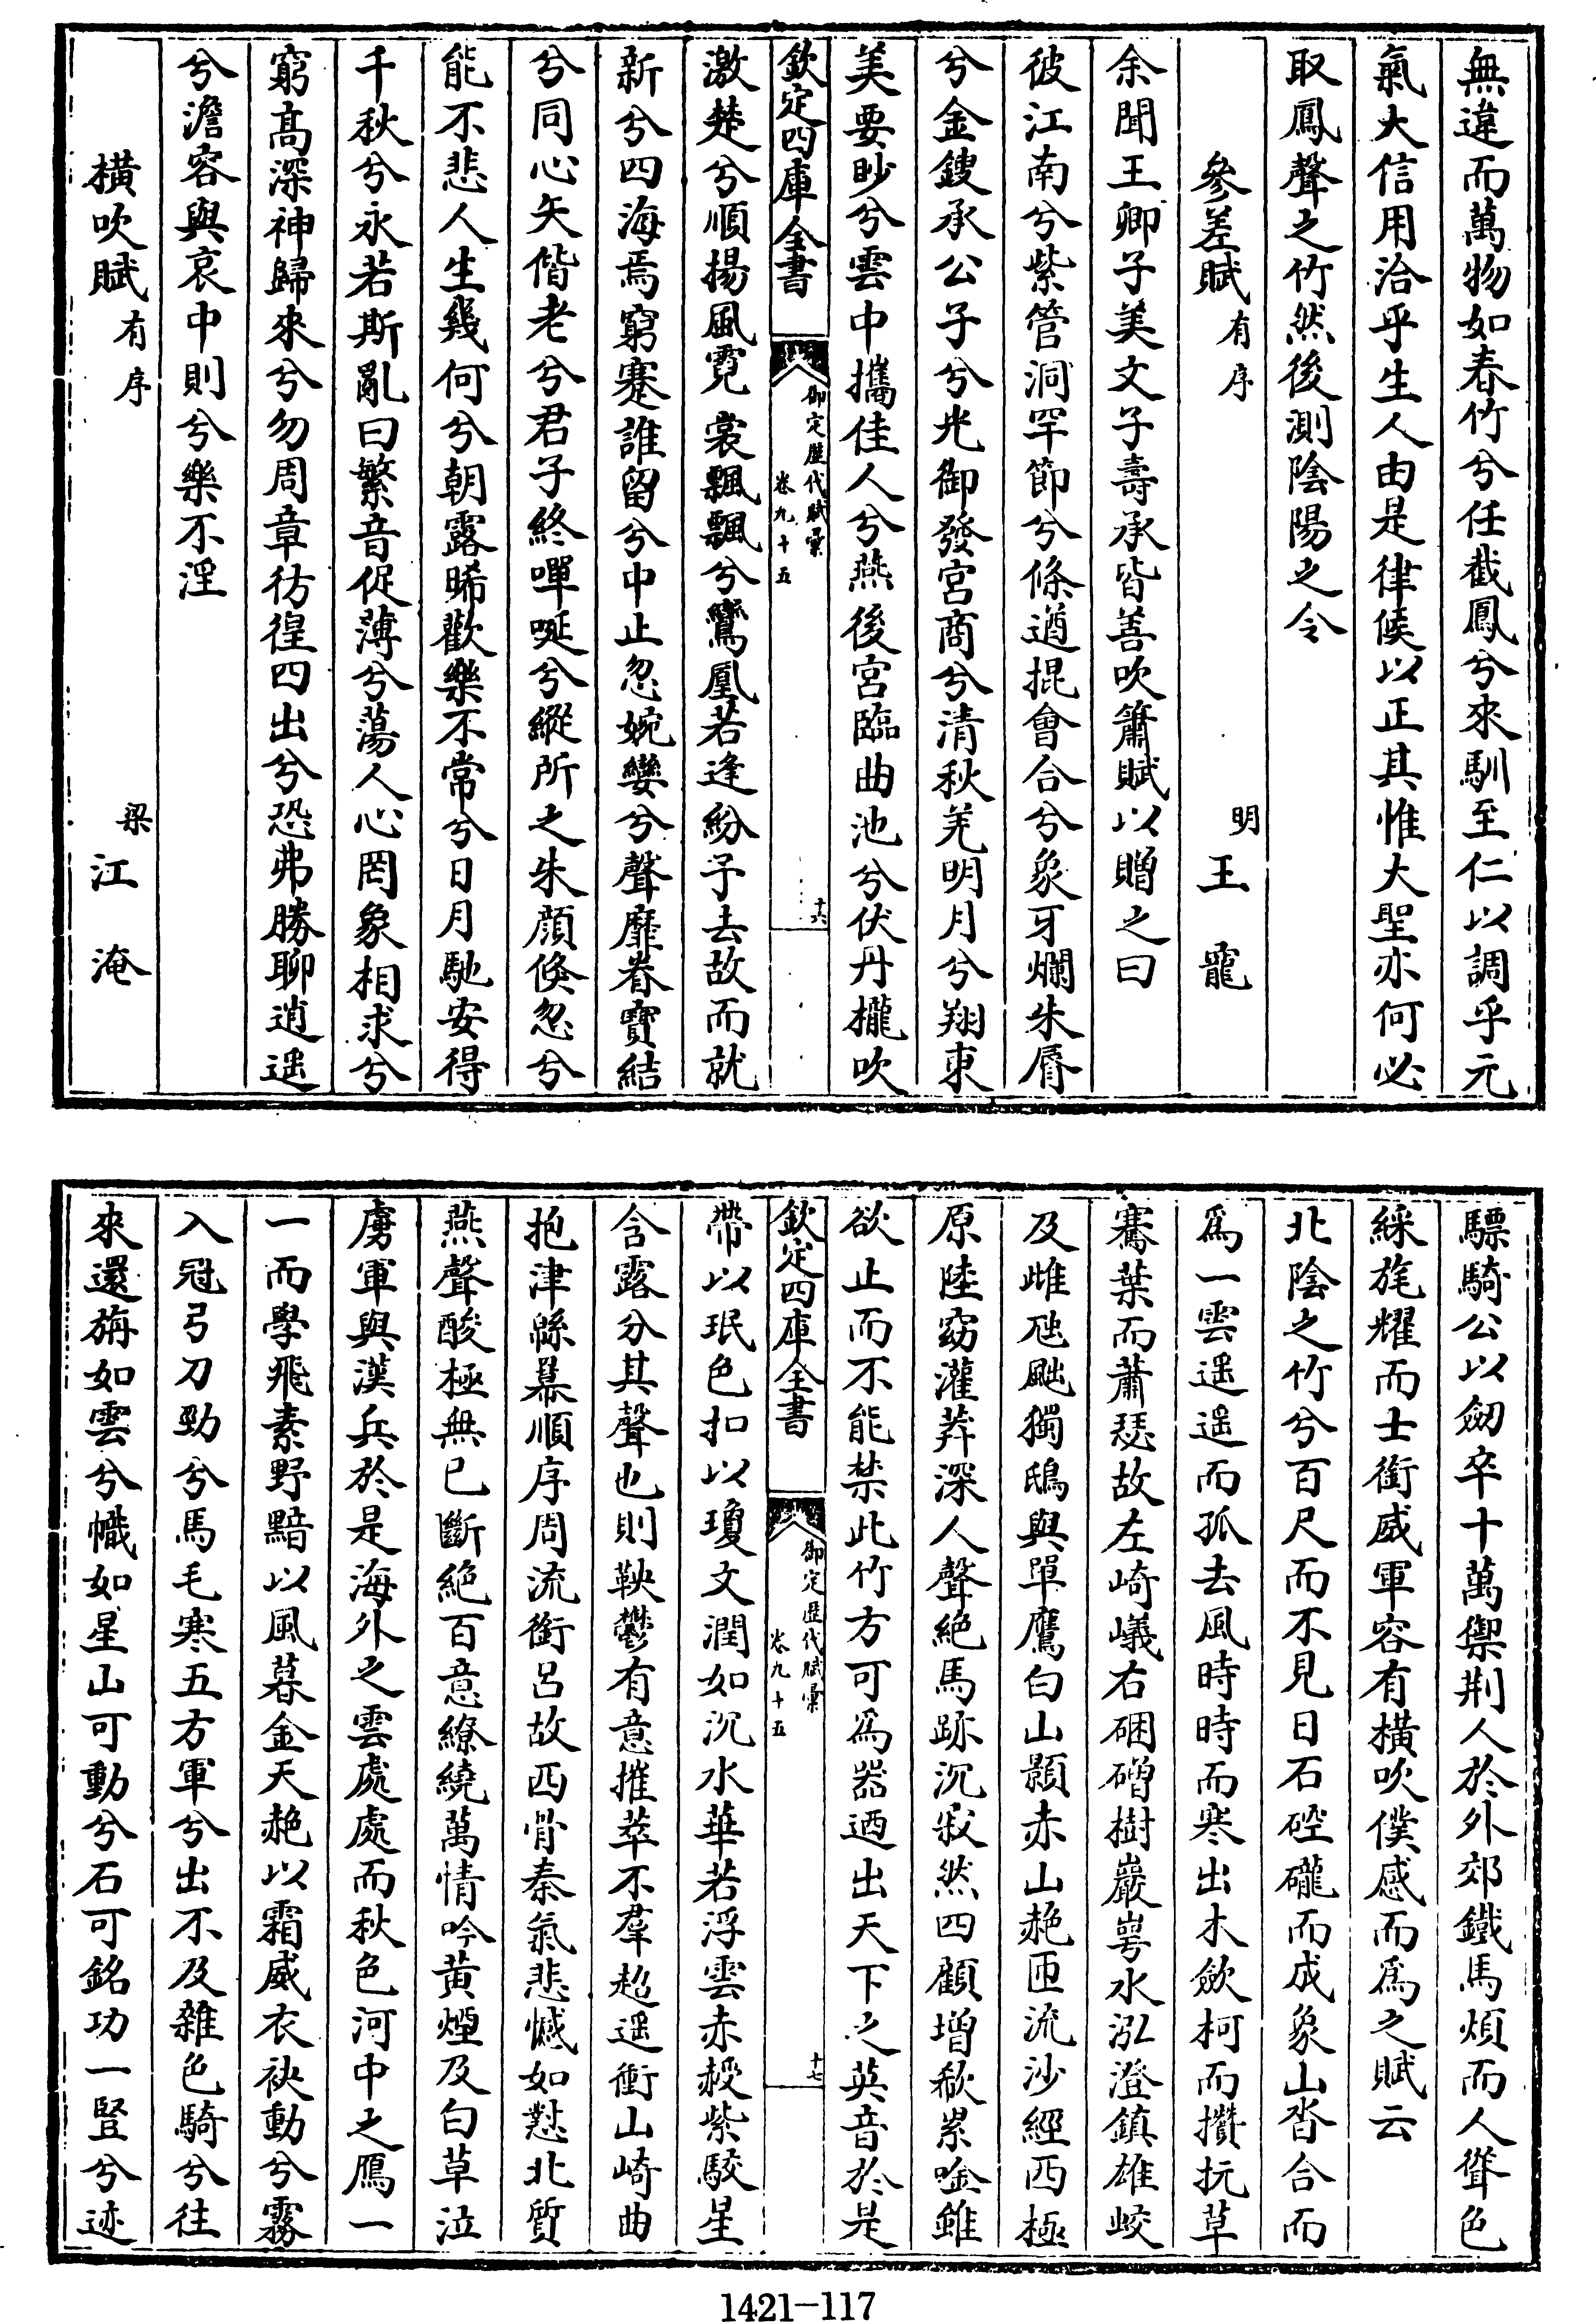 無違而萬物如春竹兮任截鳳兮來馴至仁以調乎元
氣大信用洽乎生人由是律候以正其惟大聖亦何必
取鳳聲之竹然後測陰陽之令
參差賦有序 明 王寵
余聞王卿子美文子壽承皆善吹簫賦以贈之曰
彼江南兮紫管洞罕節兮條遒掍會合兮象牙爛朱脣
兮金鍐承公子兮光御發宮商兮清秋羌明月兮翔東
美要眇兮雲中攜佳人兮燕後宮臨曲池兮伏丹櫳吹
欽定四庫全書 御定歷代賦彙 卷九十五 十六
激楚兮順揚風霓裳飄飄兮鸞凰若逢紛予去故而就
新兮四海焉窮蹇誰留兮中止忽婉孌兮聲靡眷寶結
兮同心矢偕老兮君子終嘽唌兮縱所之朱顏倏忽兮
能不悲人生幾何兮朝露晞歡樂不常兮日月馳安得
千秋兮永若斯亂曰繁音促薄兮蕩人心罔象相求兮
窮高深神歸來兮勿周章彷徨四出兮恐弗勝聊逍遙
兮澹容與哀中則兮樂不淫
橫吹賦有序 梁 江淹
驃騎公以劒卒十萬禦荆人於外郊鐵馬煩而人聳色
綵旄耀而士銜威軍容有橫吹僕感而為之賦云
北陰之竹兮百尺而不見日石硿礲而成象山沓合而
為一雲遥遥而孤去風時時而寒出木斂柯而攢抏草
騫葉而蕭瑟故左崎嶬右硱磳樹巖崿水泓澄鎮雄峧
及雌虺䶛獨鴟與單鷹白山顥赤山赩匝流沙經西極
原陸窈灌莽深人聲絶馬跡沉寂然四顧增欷累唫雖
欲止而不能禁此竹方可為器迺出天下之英音於是
欽定四庫全書 御定歷代賦彙 卷九十五 十七
帶以珉色扣以瓊文潤如沉水華若浮雲赤綬紫駮星
含露分其聲也則鞅鬱有意摧萃不羣超遥衝山崎曲
抱津緜羃順序周流銜呂故西骨秦氣悲憾如懟北質
燕聲酸極無已斷絶百意繚繞萬情吟黄煙及白草泣
虜軍與漢兵於是海外之雲處處而秋色河中之鴈一
一而學飛素野黯以風暮金天赩以霜威衣袂動兮霧
入冠弓刀勁兮馬毛寒五方軍兮出不及雜色騎兮往
來還旃如雲兮幟如星山可動兮石可銘功一豎兮迹
1421—117